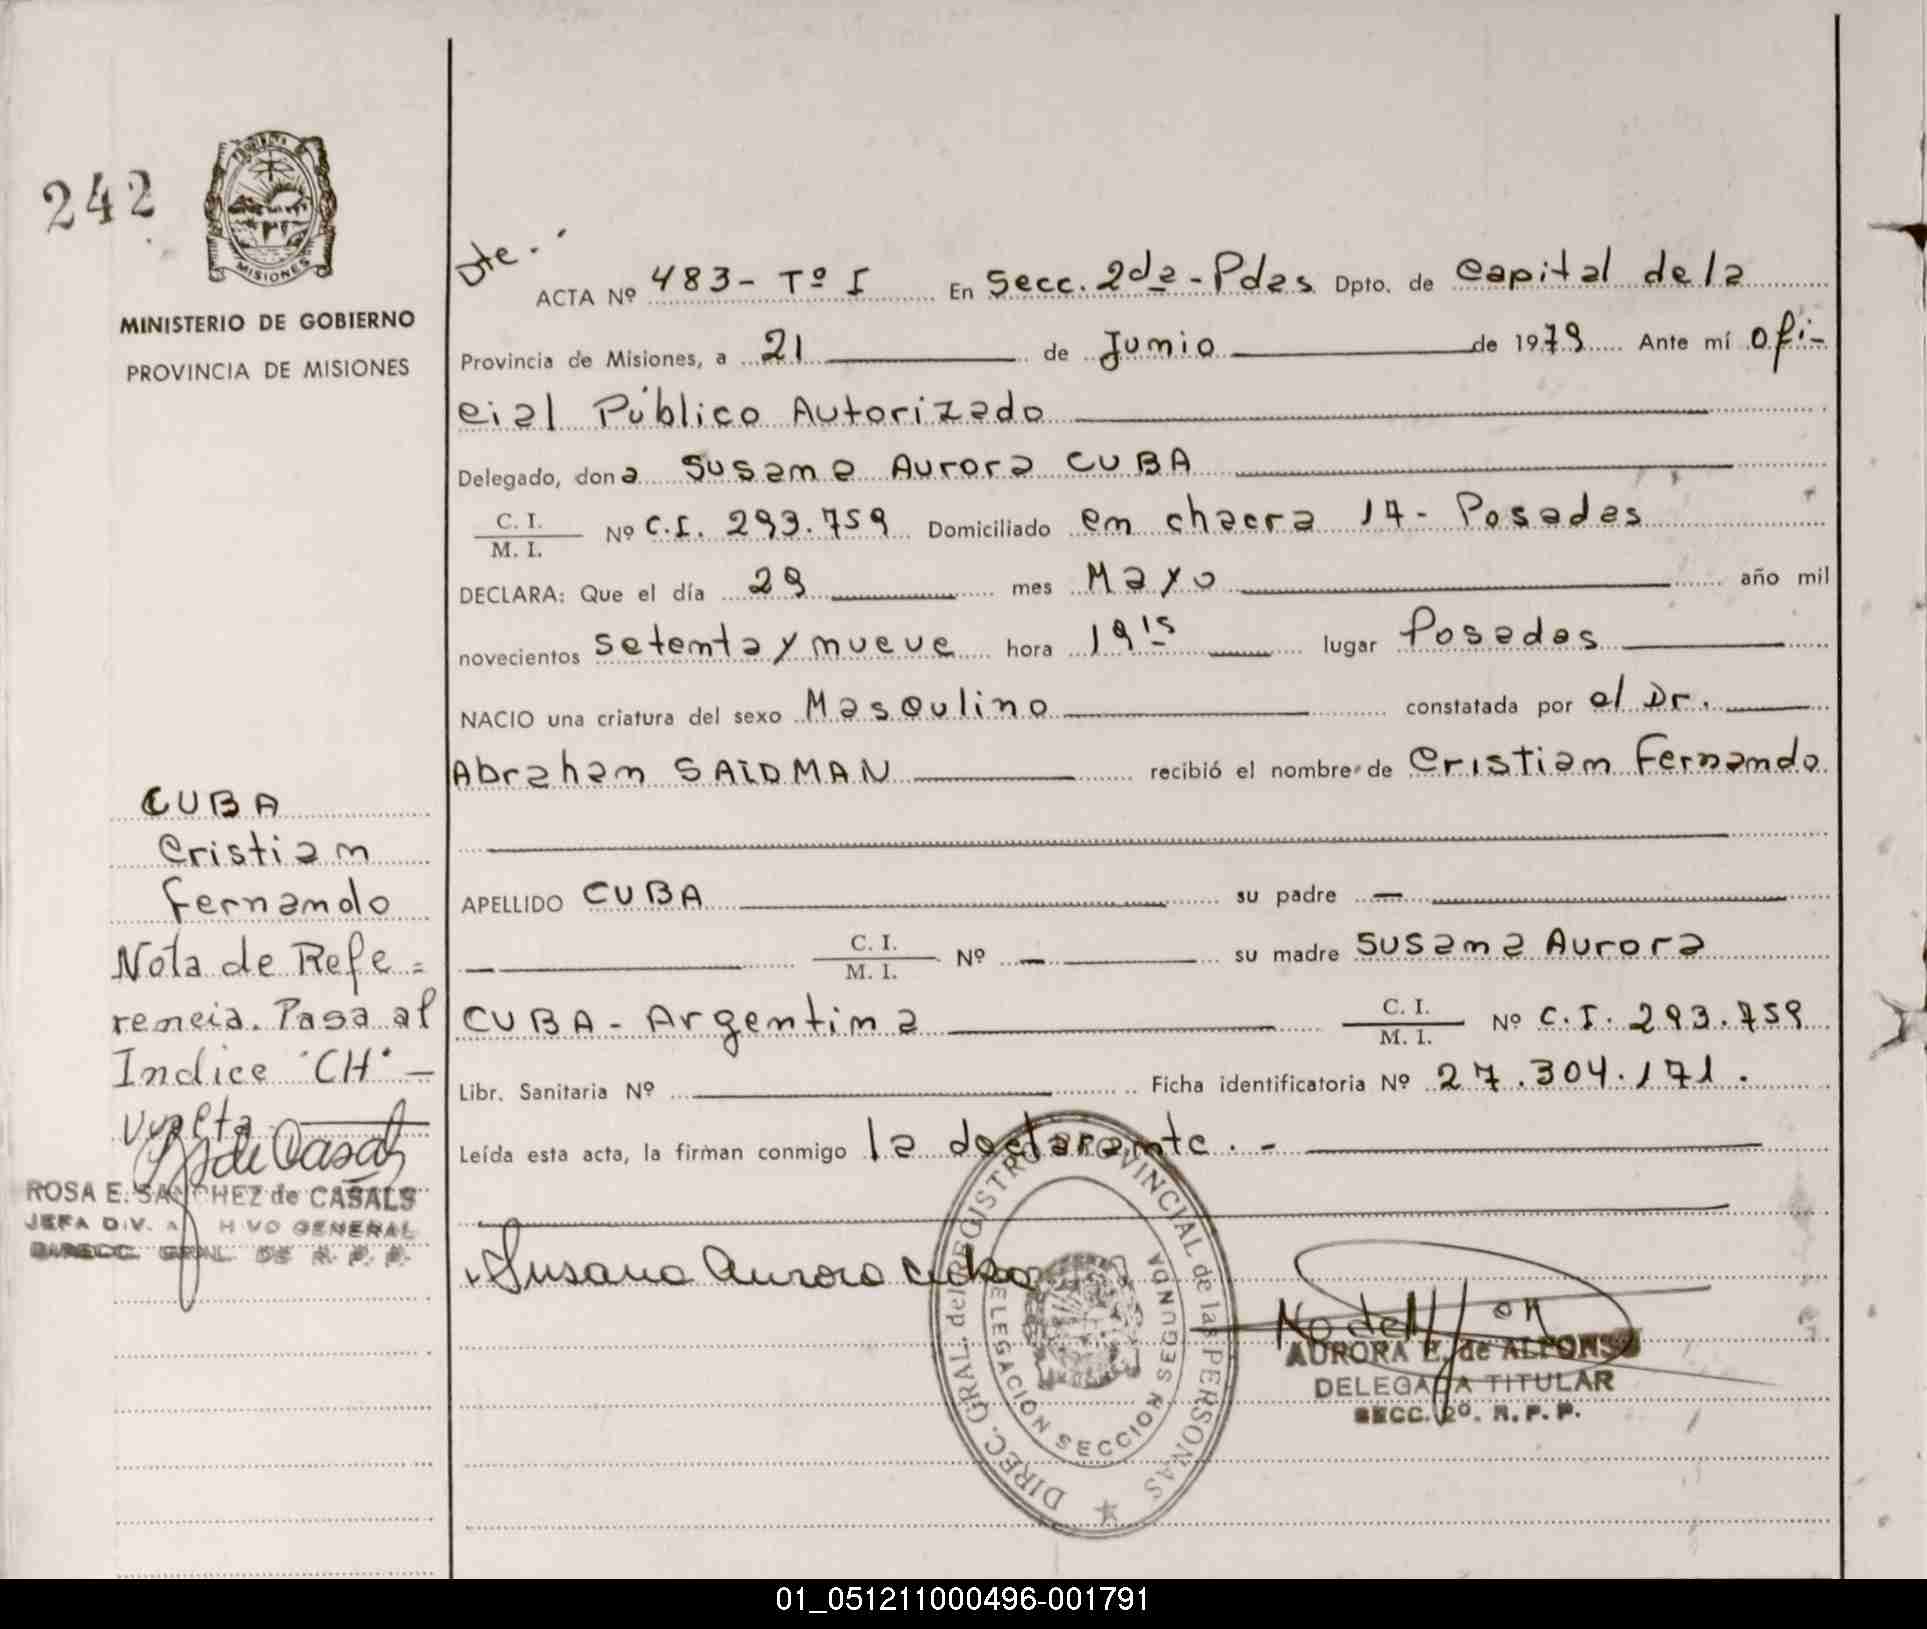 242
MISIONES
MINISTERIO DE GOBIERNO
PROVINCIA DE MISIONES
Dte.-
ACTA Nº 483- Tº I En Secc. 2da-Pdas Dpto. de Capital de la
Provincia de Misiones, a 21 de Junio de 1979 Ante mí Ofi-
cial Público Autorizado
Delegado, dona Susana Aurora CUBA
C. I.
M. I. Nº C.I. 293.759 Domiciliado en chacra 14- Posadas
DECLARA: Que el día 29 mes Mayo año mil
novecientos setenta y nueve hora 19 15 lugar Posadas
NACIO una criatura del sexo Masculino constatada por el Dr.
Abraham SAIDMAN recibió el nombre de Cristian Fernando
APELLIDO CUBA su padre —
— C. I.
M. I. Nº — su madre Susana Aurora
CUBA - Argentina C. I.
M. I. Nº C.I. 293.759
Libr. Sanitaria Nº Ficha identificatoria Nº 27.304.171.
Leída esta acta, la firman conmigo la declarante.-
Susana Aurora Cuba
DIREC. GRAL. del REGISTRO PROVINCIAL de las PERSONAS
DELEGACION SECCION SEGUNDA
AURORA E. de ALFONSO
DELEGADA TITULAR
SECC. 2º. R. P. P.
CUBA
Cristian
Fernando
Nota de Refe=
rencia. Pasa al
Indice "CH" -
vuelta
ROSA E. SANCHEZ de CASALS
JEFA DIV. ARCHIVO GENERAL
DIRECC. GRAL. DE R. P. P.
01_051211000496-001791